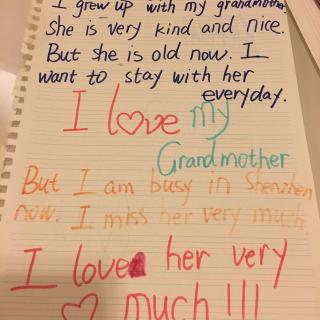 I grew up with my grandmother.
She is very kind and nice.
But she is old now. I
want to stay with her
everyday.
I love my
Grandmother
But I am busy in Shenzhen
now. I miss her very much
I love her very
much!!!